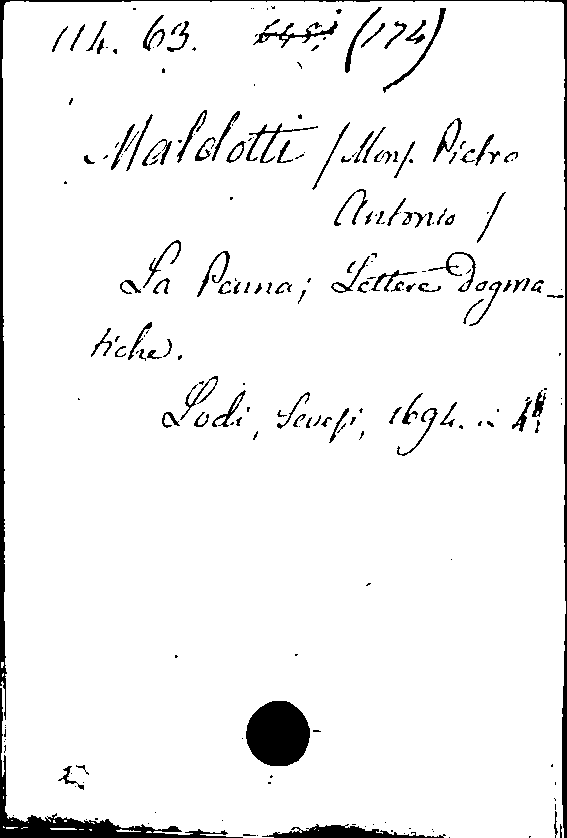 114. 63. (174)
Maldotti / Mons. Pietro
Antonio /
La Penna; Lettere Dogma_
tiche.
Lodi, Sevesi, 1694. in 4º